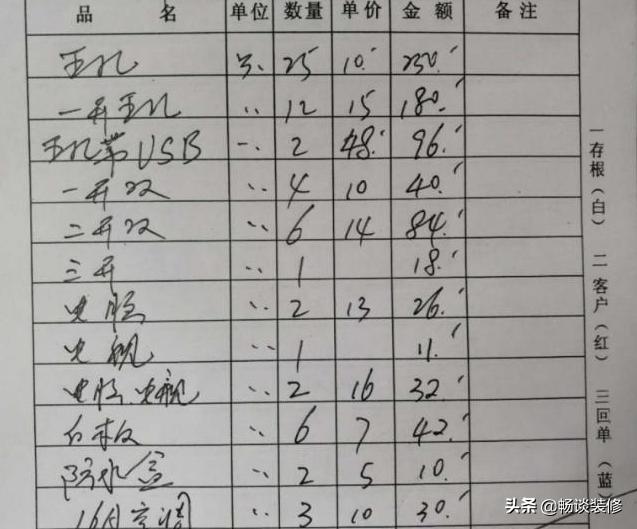 品 名 单位 数量 单价 金额 备注
五孔 只 25 10. 250.
一开五孔 〃 12 15 180.
五孔带USB 〃 2 48. 96.
一开双 〃 4 10 40.
二开双 〃 6 14 84.
三开 〃 1 18.
电脑 〃 2 13 26.
电视 〃 1 11.
电脑.电视 〃 2 16 32.
白板 〃 6 7 42.
防水盒 〃 2 5 10.
16A空调 〃 3 10 30.
一存根(白) 二客户(红) 三回单(蓝
头条 @畅谈装修